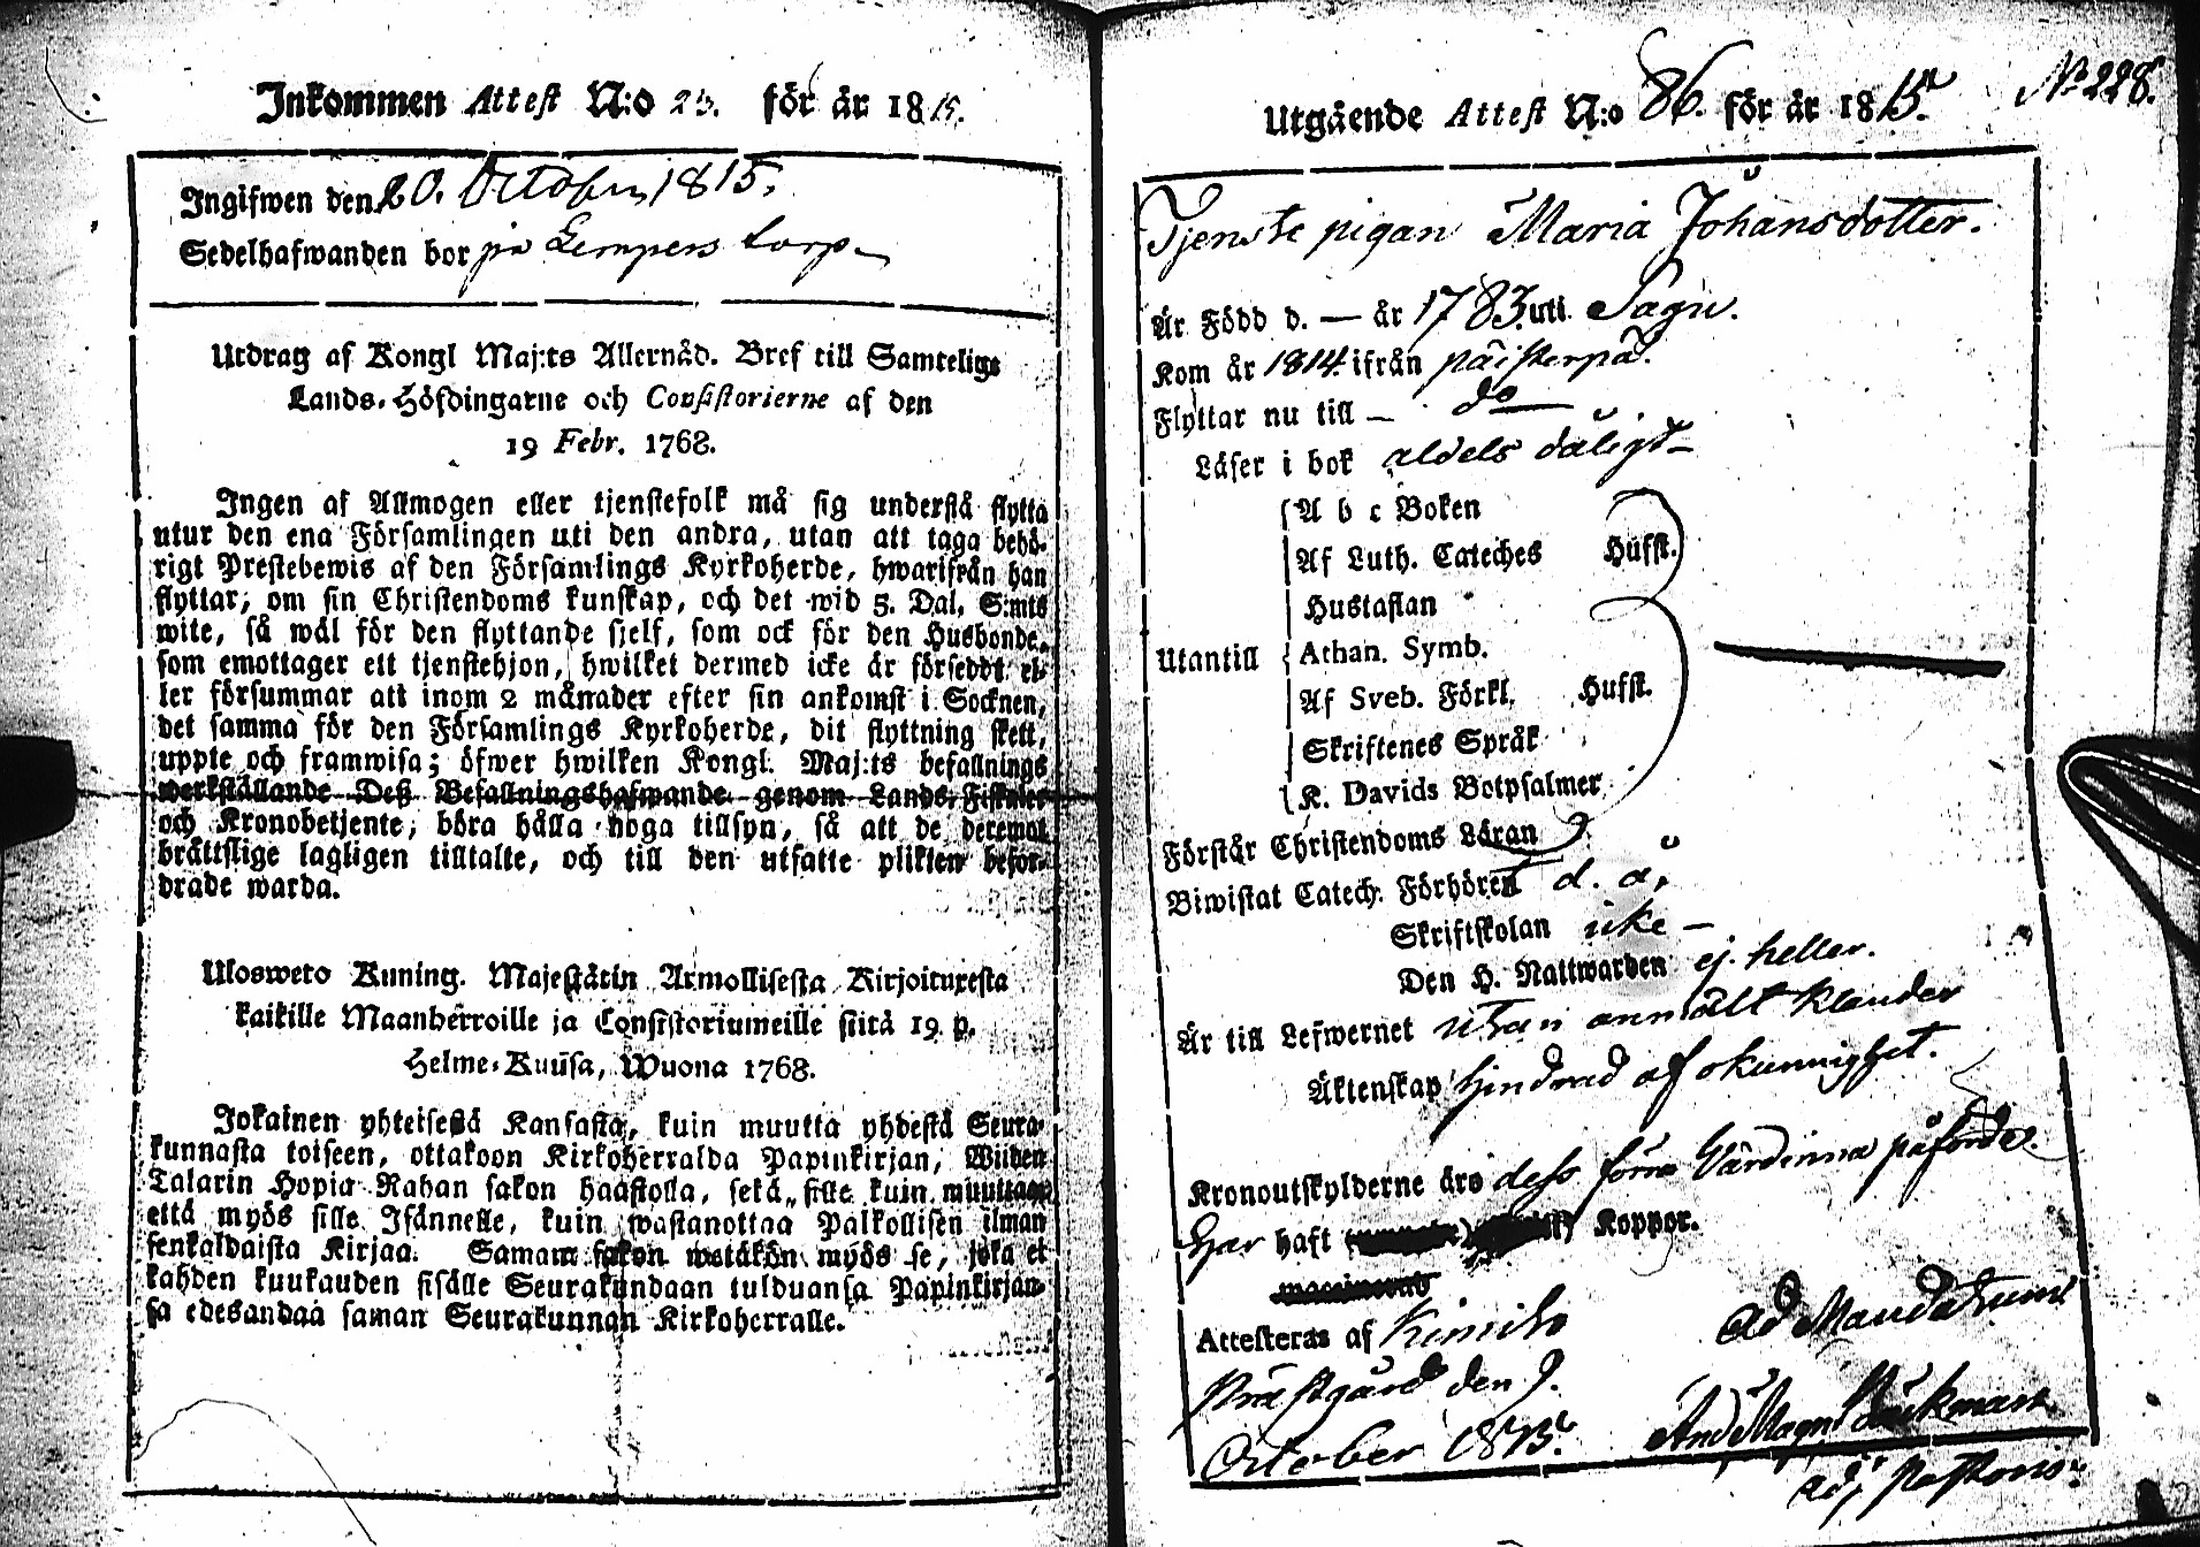 Inkommen Attest N:o 25. för år 1815.
Ingifwen den 20. October 1815.
Sedelhafwanden bor på Lempers torp
Utdrag af Kongl Maj:ts Allernåd. Bref till Samtelige
Lands-Höfdingarne och Consistorierne af den
19 Febr. 1768.
Ingen af Allmogen eller tjenstefolk må sig understå flytta
utur den ena Församlingen uti den andra, utan att taga behö-
rigt Prestebewis af den Församlings Kyrkoherde, hwarifrån han
flyttar, om sin Christendoms kunskap, och det wid 5. Dal. S:mts
wite, så wäl för den flyttande sjelf, som ock för den Husbonde,
som emottager ett tjenstehjon, hwilket dermed icke är förseddt el-
ler försummar att inom 2 månader efter sin ankomst i Socknen,
det samma för den Församlings Kyrkoherde, dit flyttning skett,
uppte och framwisa; öfwer hwilken Kongl. Maj:ts befallnings
werkställande Deß Befallningshafwande genom Lands-Fiskaler
och Kronobetjente, böra hålla noga tillsyn, så att de deremot
brättslige lagligen tilltalte, och till den utsatte plikten befor-
drade warda.
Ulosweto Kuning. Majestätin Armollisesta Kirjoituxesta
kaikille Maanherroille ja Consistoriumeille siitä 19. p.
Helme-Kuusa, Wuona 1768.
Jokainen yhteisestä Kansasta, kuin muutta yhdestä Seura-
kunnasta toiseen, ottakoon Kirkoherralda Papinkirjan, Wiiden
Talarin Hopia Rahan sakon haastolla, sekä sille kuin muuttaa,
että myös sille Isännelle, kuin wastanottaa Palkollisen ilman
senkaldaista Kirjaa. Saman sakon wetäkön myös se, joka ei
kahden kuukauden sisälle Seurakundaan tulduansa Papinkirjan-
sa edesandaa saman Seurakunnan Kirkoherralle.
Utgående Attest N:o 86. för år 1815. No 228.
Tjenste pigan Maria Johansdotter.
Är Född d. — år 1783. uti Sagu.
Kom år 1814. ifrån påisterpå.
Flyttar nu till — do —
Läser i bok aldels dåligt —
A b c Boken
Af Luth. Cateches Hufst.
Hustaflan
Utantill Athan. Symb.
Af Sveb. Förkl. Hufst.
Skriftenes Språk
K. Davids Botpsalmer
Förstår Christendoms Läran
Biwistat Catech. Förhören d. å.
Skriftskolan icke —
Den H. Nattwarden ej heller.
Är till Lefwernet utan anmält klander
Äktenskap hindrad af okunnighet.
Kronoutskylderne äro dess förra Värdinna påförde.
Har haft Koppor.
Attesteras af Kimito Ad Mandatum
Prästgård den 9.
October 1815. And Magn
adj. Pastoris.